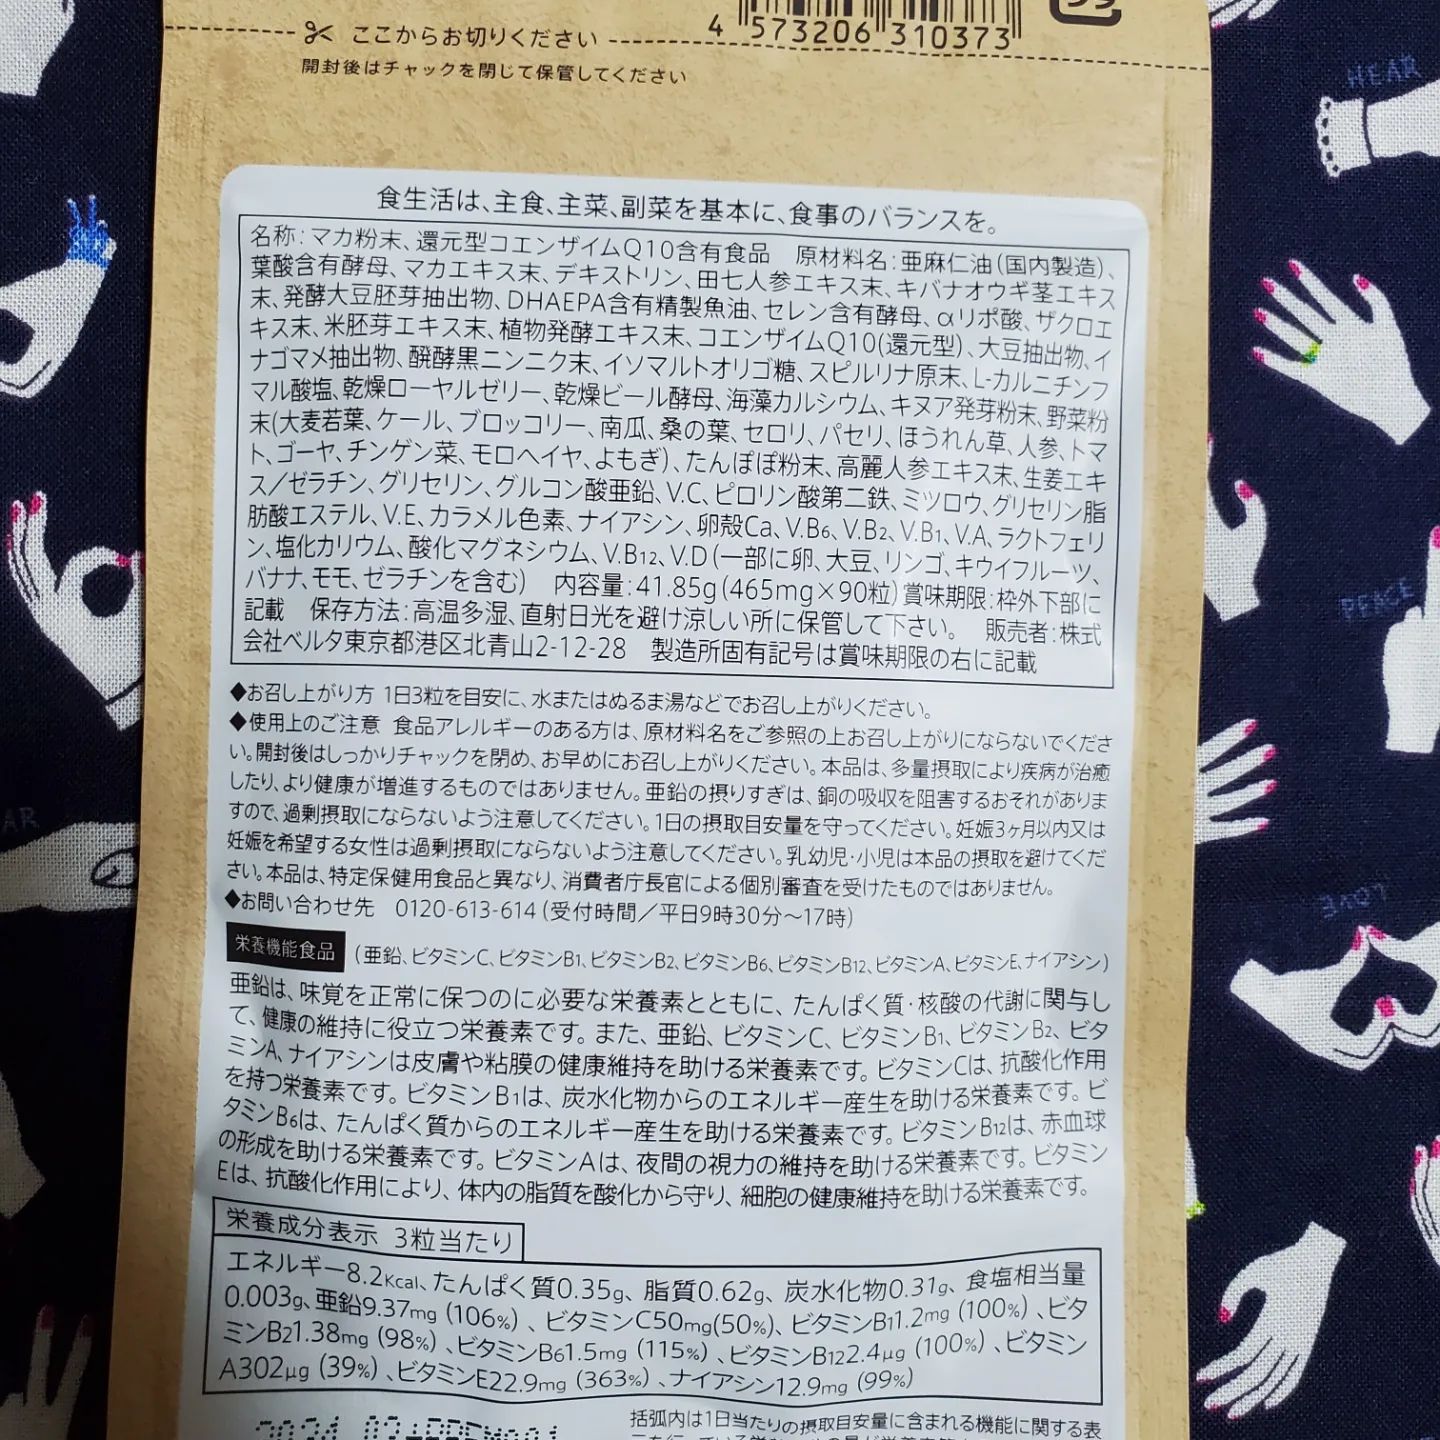 4 573206 310373
ここからお切りください
開封後はチャックを閉じて保管してください
食生活は、主食、主菜、副菜を基本に、食事のバランスを。
名称：マカ粉末、還元型コエンザイムQ10含有食品　原材料名：亜麻仁油（国内製造）、
葉酸含有酵母、マカエキス末、デキストリン、田七人参エキス末、キバナオウギ茎エキス
末、発酵大豆胚芽抽出物、DHAEPA含有精製魚油、セレン含有酵母、αリポ酸、ザクロエ
キス末、米胚芽エキス末、植物発酵エキス末、コエンザイムQ10(還元型)、大豆抽出物、イ
ナゴマメ抽出物、醗酵黒ニンニク末、イソマルトオリゴ糖、スピルリナ原末、L-カルニチンフ
マル酸塩、乾燥ローヤルゼリー、乾燥ビール酵母、海藻カルシウム、キヌア発芽粉末、野菜粉
末(大麦若葉、ケール、ブロッコリー、南瓜、桑の葉、セロリ、パセリ、ほうれん草、人参、トマ
ト、ゴーヤ、チンゲン菜、モロヘイヤ、よもぎ)、たんぽぽ粉末、高麗人参エキス末、生姜エキ
ス／ゼラチン、グリセリン、グルコン酸亜鉛、V.C、ピロリン酸第二鉄、ミツロウ、グリセリン脂
肪酸エステル、V.E、カラメル色素、ナイアシン、卵殻Ca、V.B6、V.B2、V.B1、V.A、ラクトフェリ
ン、塩化カリウム、酸化マグネシウム、V.B12、V.D（一部に卵、大豆、リンゴ、キウイフルーツ、
バナナ、モモ、ゼラチンを含む）　内容量：41.85g（465mg×90粒）賞味期限：枠外下部に
記載　保存方法：高温多湿、直射日光を避け涼しい所に保管して下さい。　販売者：株式
会社ベルタ東京都港区北青山2-12-28　製造所固有記号は賞味期限の右に記載
◆お召し上がり方 1日3粒を目安に、水またはぬるま湯などでお召し上がりください。
◆使用上のご注意 食品アレルギーのある方は、原材料名をご参照の上お召し上がりにならないでくださ
い。開封後はしっかりチャックを閉め、お早めにお召し上がりください。本品は、多量摂取により疾病が治癒
したり、より健康が増進するものではありません。亜鉛の摂りすぎは、銅の吸収を阻害するおそれがありま
すので、過剰摂取にならないよう注意してください。1日の摂取目安量を守ってください。妊娠3ヶ月以内又は
妊娠を希望する女性は過剰摂取にならないよう注意してください。乳幼児・小児は本品の摂取を避けてくだ
さい。本品は、特定保健用食品と異なり、消費者庁長官による個別審査を受けたものではありません。
◆お問い合わせ先　0120-613-614（受付時間／平日9時30分～17時）
栄養機能食品（亜鉛、ビタミンC、ビタミンB1、ビタミンB2、ビタミンB6、ビタミンB12、ビタミンA、ビタミンE、ナイアシン）
亜鉛は、味覚を正常に保つのに必要な栄養素とともに、たんぱく質・核酸の代謝に関与し
て、健康の維持に役立つ栄養素です。また、亜鉛、ビタミンC、ビタミンB1、ビタミンB2、ビタ
ミンA、ナイアシンは皮膚や粘膜の健康維持を助ける栄養素です。ビタミンCは、抗酸化作用
を持つ栄養素です。ビタミンB1は、炭水化物からのエネルギー産生を助ける栄養素です。ビ
タミンB6は、たんぱく質からのエネルギー産生を助ける栄養素です。ビタミンB12は、赤血球
の形成を助ける栄養素です。ビタミンAは、夜間の視力の維持を助ける栄養素です。ビタミン
Eは、抗酸化作用により、体内の脂質を酸化から守り、細胞の健康維持を助ける栄養素です。
栄養成分表示 3粒当たり
エネルギー8.2Kcal、たんぱく質0.35g、脂質0.62g、炭水化物0.31g、食塩相当量
0.003g、亜鉛9.37mg（106%）、ビタミンC50mg(50%)、ビタミンB11.2mg（100%）、ビタ
ミンB21.38mg（98%）、ビタミンB61.5mg（115%）、ビタミンB122.4μg（100%）、ビタミン
A302μg（39%）、ビタミンE22.9mg（363%）、ナイアシン12.9mg（99%）
括弧内は1日当たりの摂取目安量に含まれる機能に関する表
HEAR
PEACE
LOVE